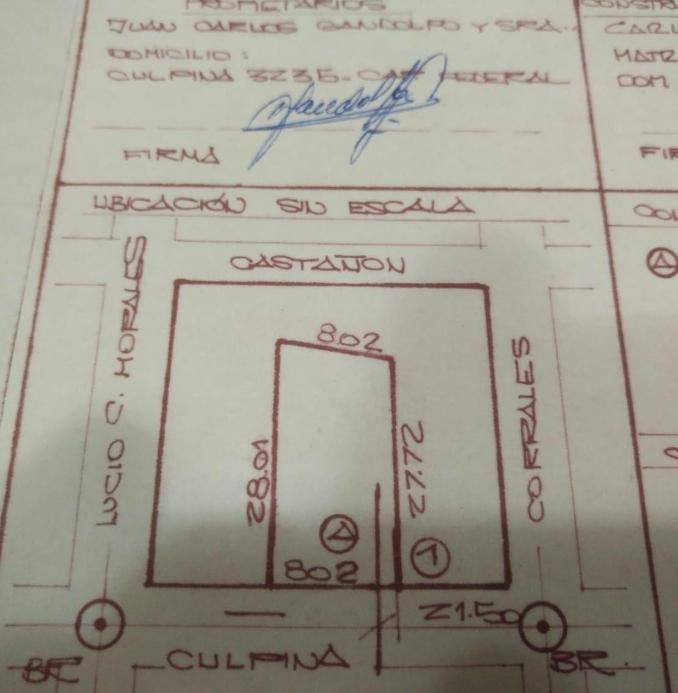 PROPIETARIOS
JUAN CARLOS GANDOLFO Y SRA..
DOMICILIO:
CULPINA 3235-CAP. FEDERAL
FIRMA
UBICACIÓN SIN ESCALA
CASTAÑON
LUCIO C. MORALES
8.02
CORRALES
28.01
27.72
A
1
802
21.50
BR
CULPINA
BR.
CARL
MATR
DOM
FIR
A